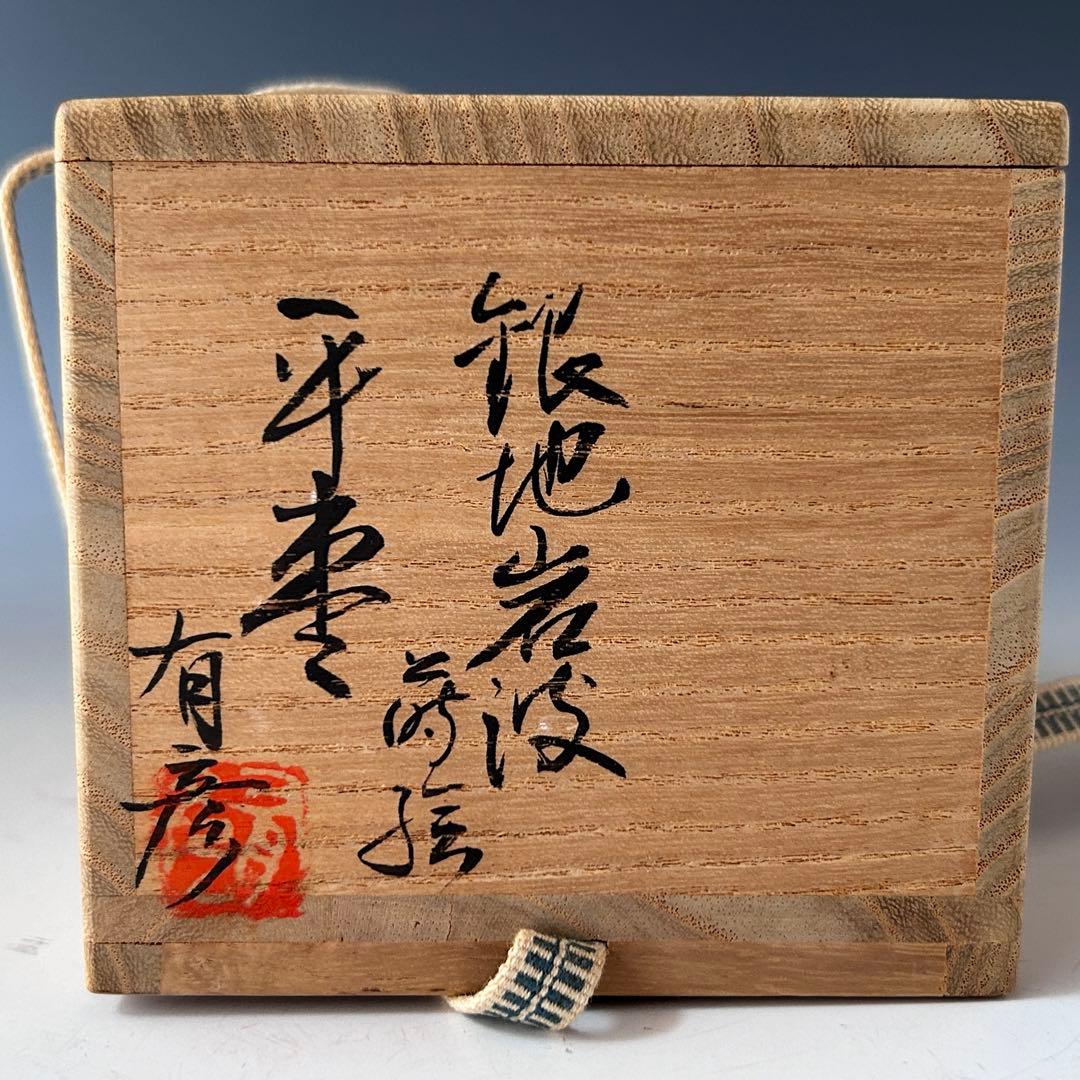 銀地岩波
蒔絵
平棗
有彦